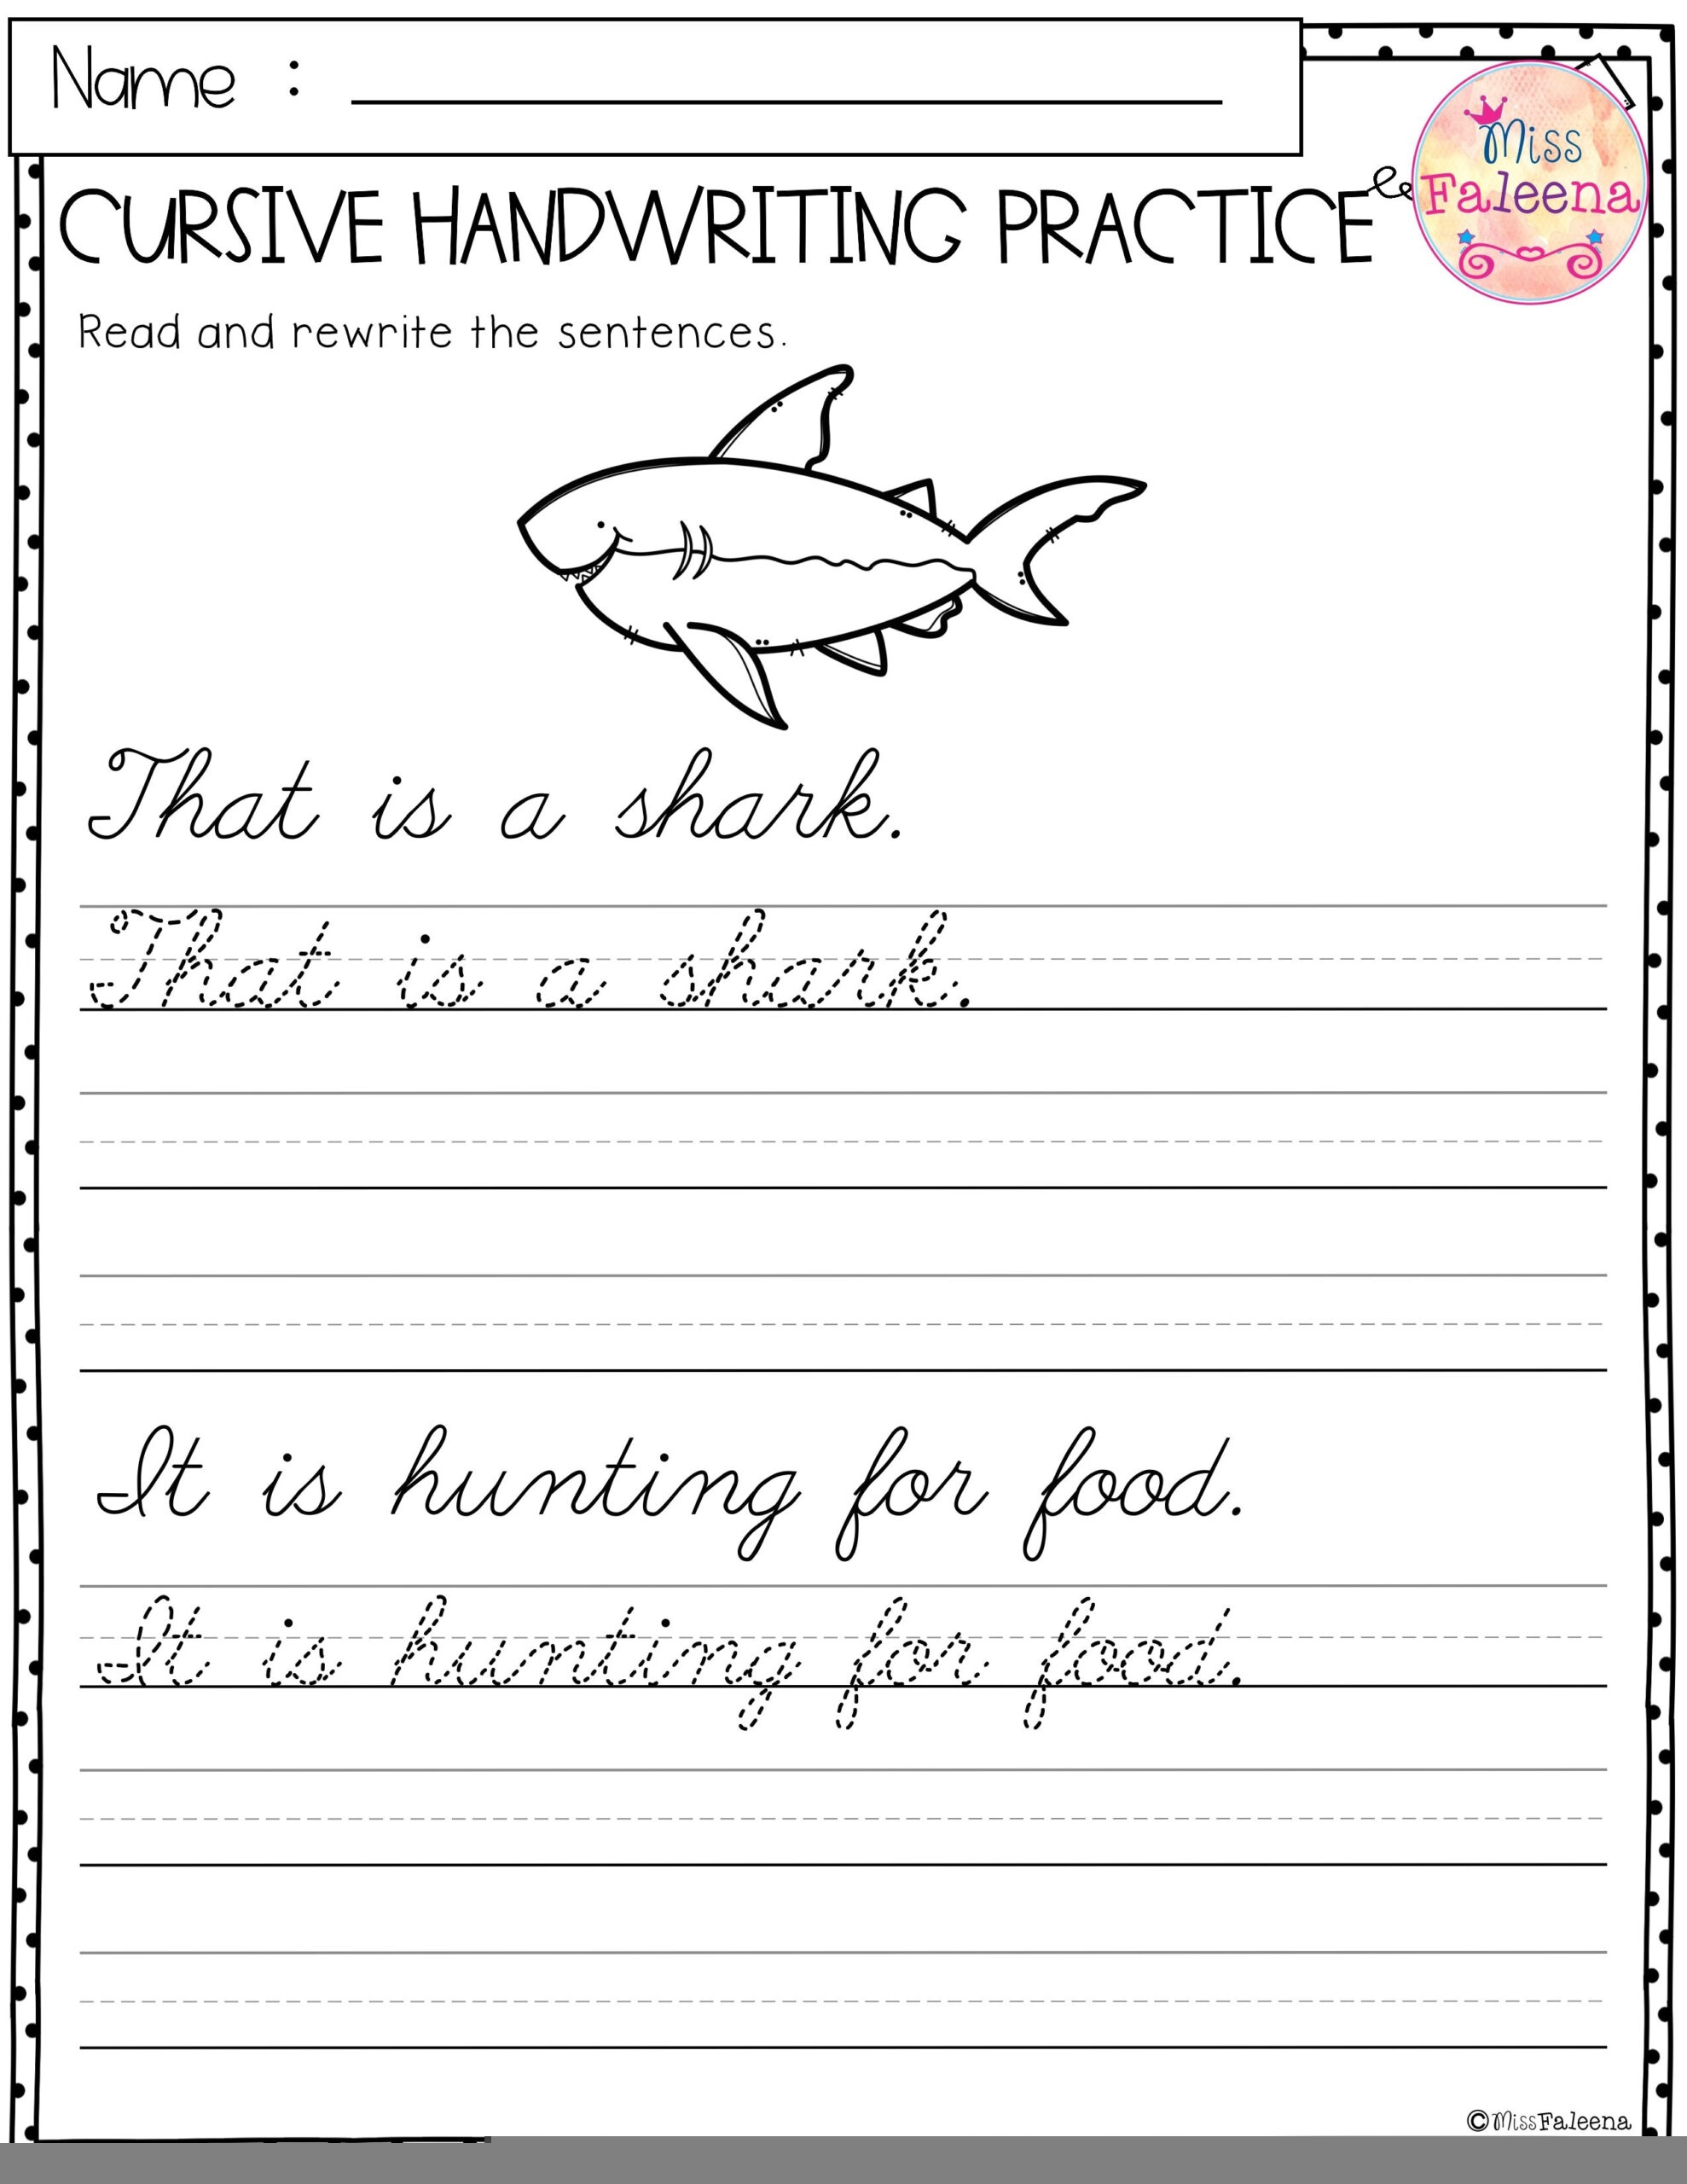 Name :
Miss
Faleena
CURSIVE HANDWRITING PRACTICE
Read and rewrite the sentences.
That is a shark.
That is a shark.
It is hunting for food.
It is hunting for food.
©MissFaleena